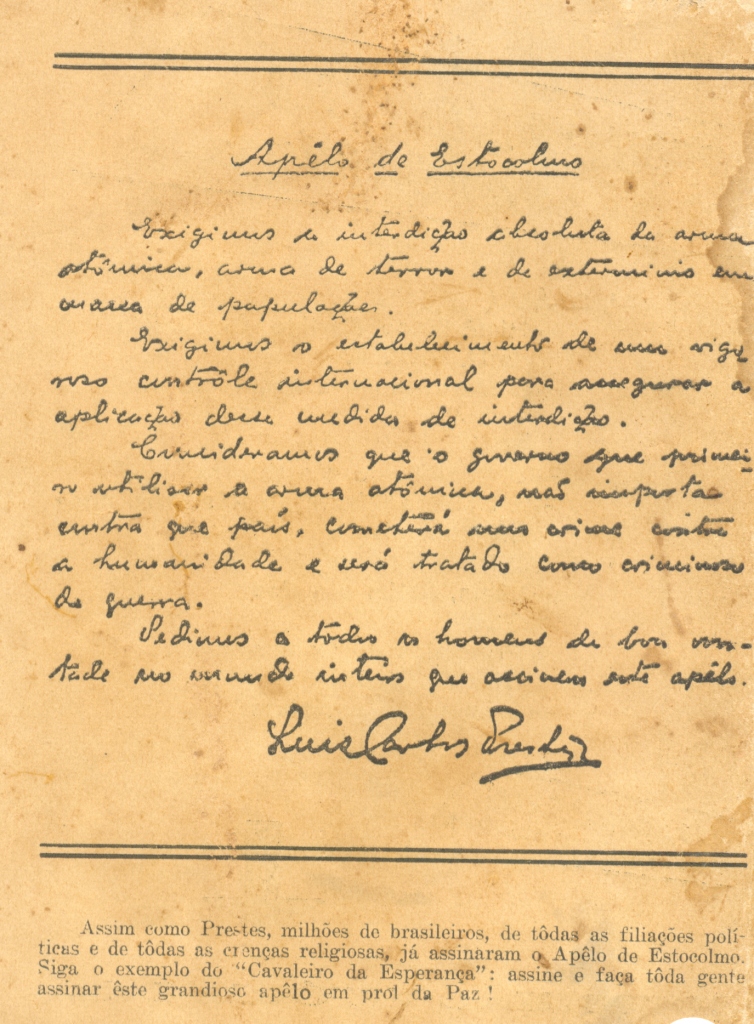 Apêlo de Estocolmo
Exigimos a interdição absoluta da arma
atômica, arma de terror e de exterminio em
massa de populações.
Exigimos o estabelecimento de um rigo
roso contrôle internacional para assegurar a
aplicação dessa medida de interdição.
Consideramos que o governo que primei-
ro utilisar a arma atômica, não importa
contra que país, cometerá um crime contra
a humanidade e será tratado como criminoso
de guerra.
Pedimos a todos os homens de boa von-
tade no mundo inteiro que assinem este apêlo.
Luis Carlos Prestes
Assim como Prestes, milhões de brasileiros, de tôdas as filiações polí-
ticas e de tôdas as crenças religiosas, já assinaram o Apêlo de Estocolmo.
Siga o exemplo do "Cavaleiro da Esperança": assine e faça tôda gente
assinar êste grandioso apêlo em prol da Paz!